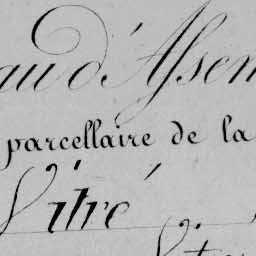 au d'Assem
parcellaire de la
Vitré